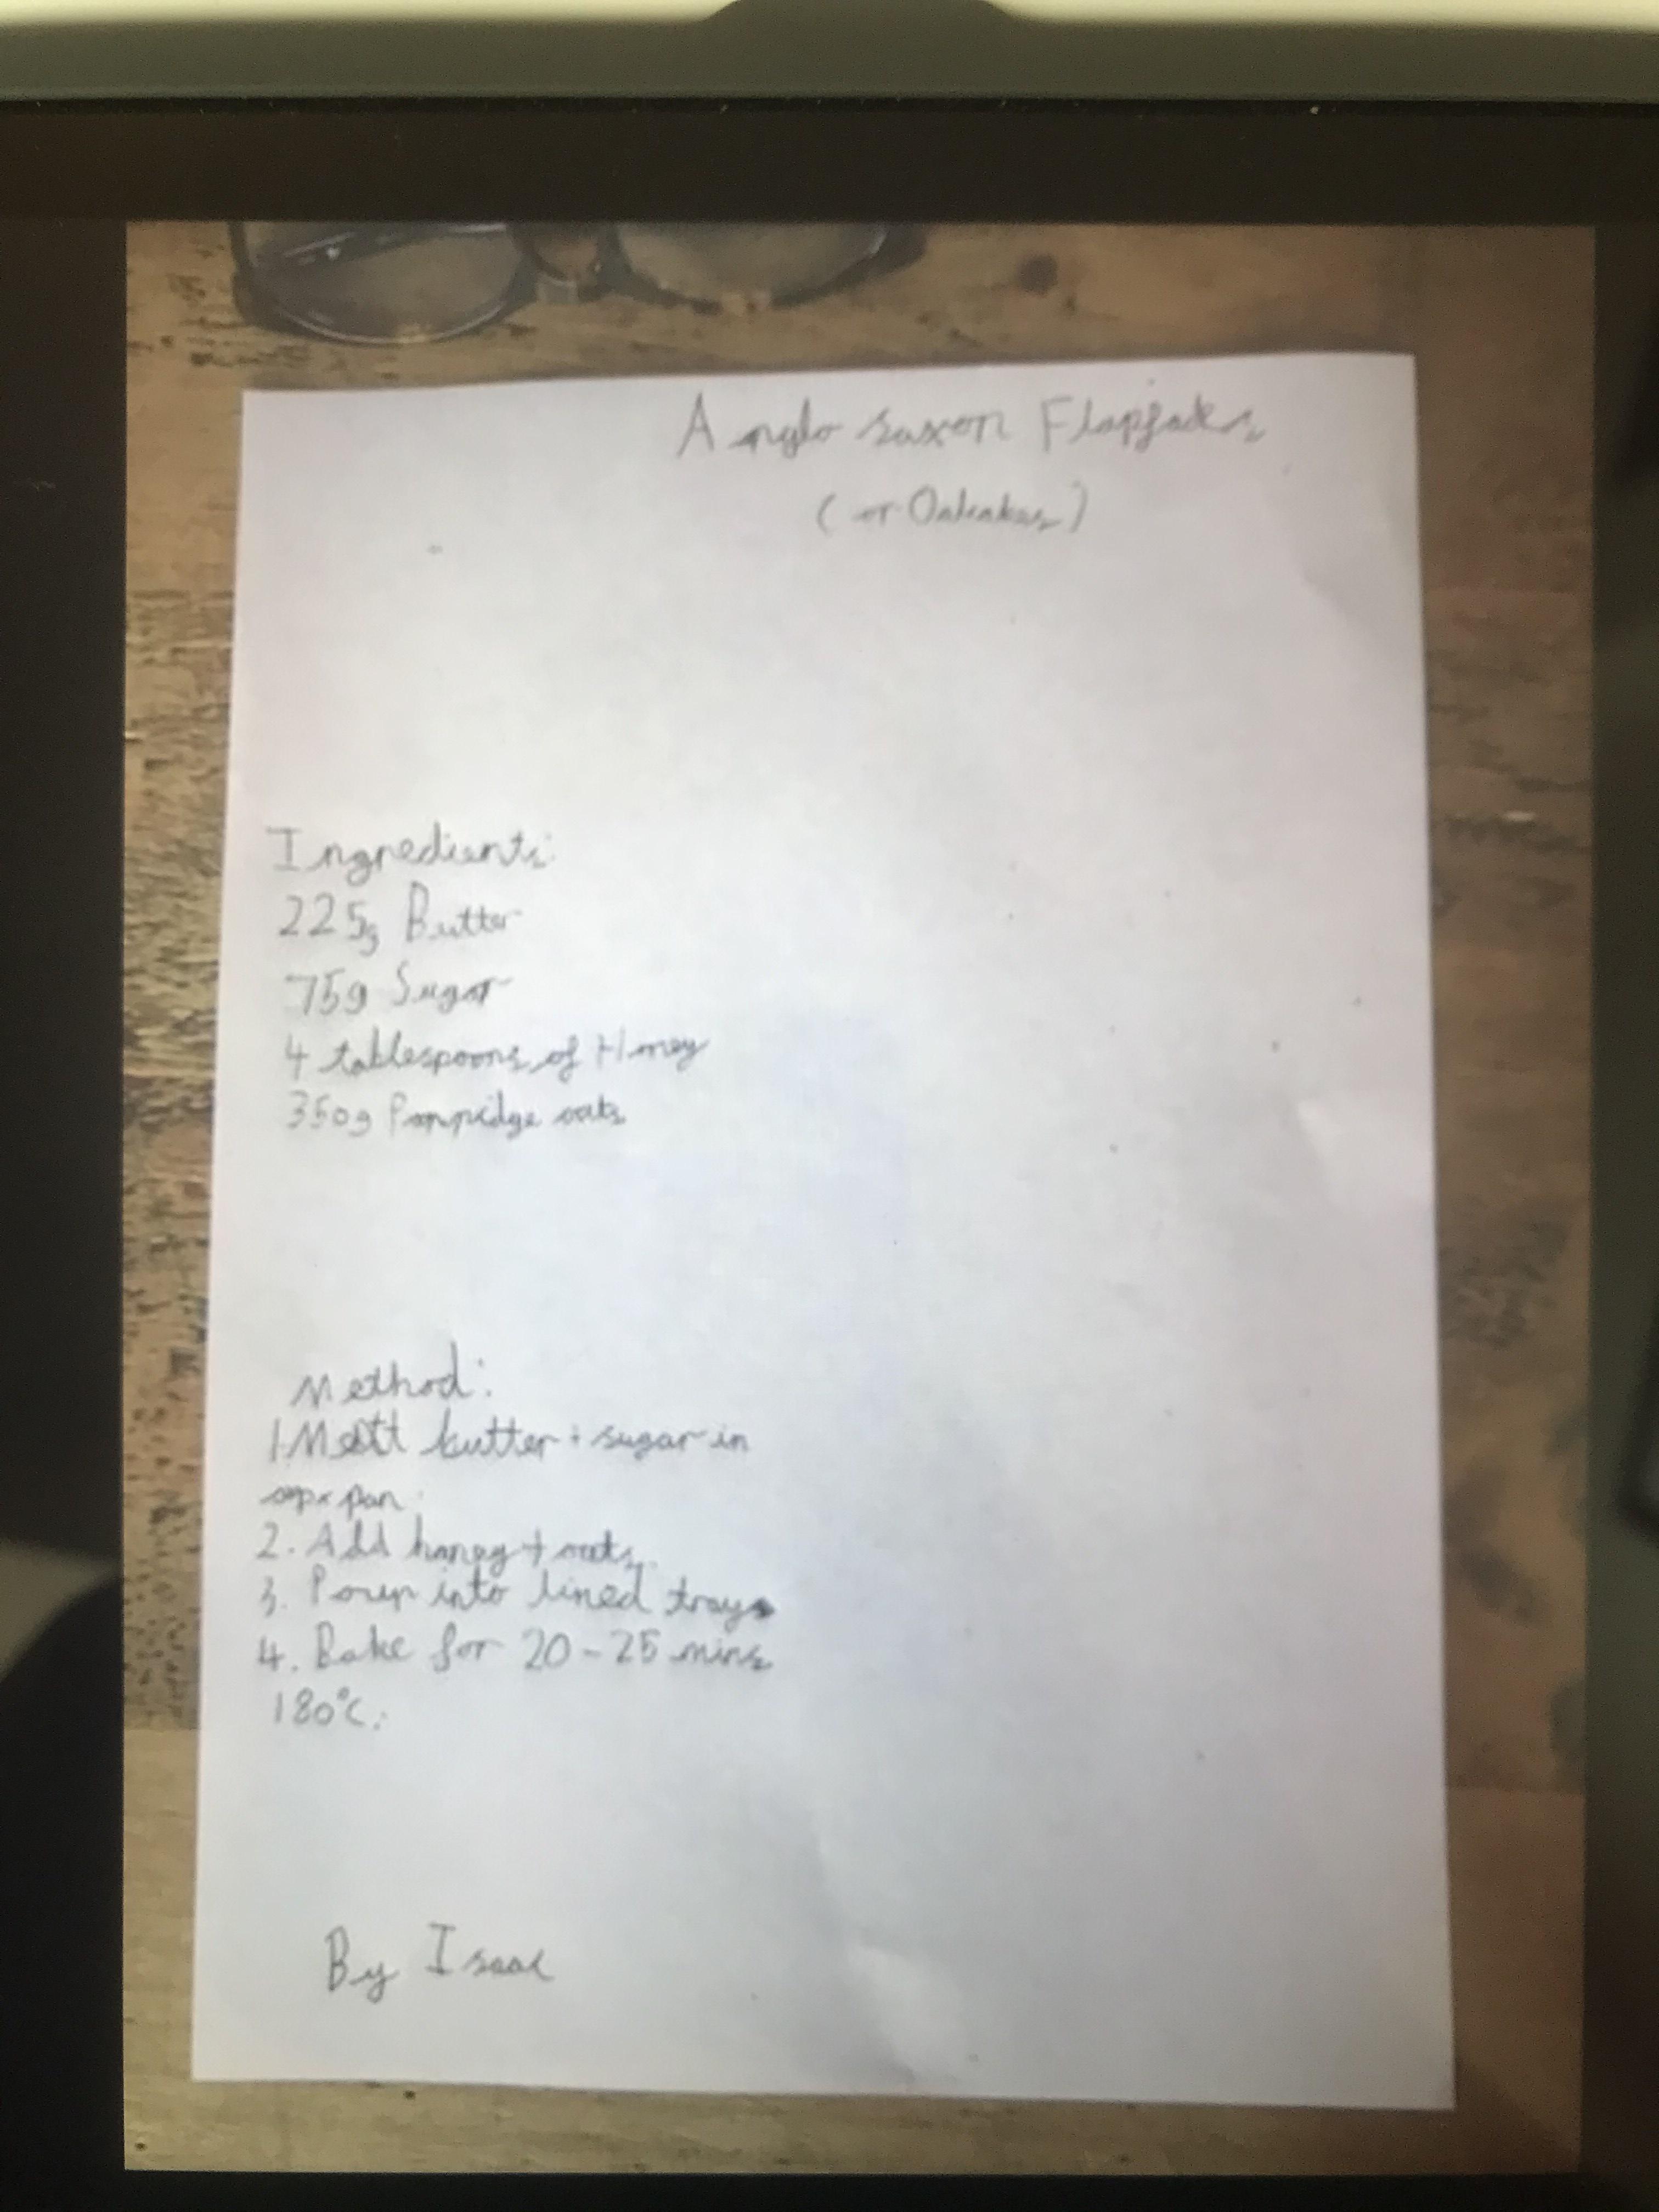 Anglo saxon Flapjacks
(or Oatcakes)
Ingredients:
225g Butter
75g Sugar
4 tablespoons of Honey
350g Porridge oats
Method:
1. Melt butter + sugar in
pan.
2. Add honey + oats.
3. Pour into lined tray
4. Bake for 20-25 mins
180°C.
By Isaac